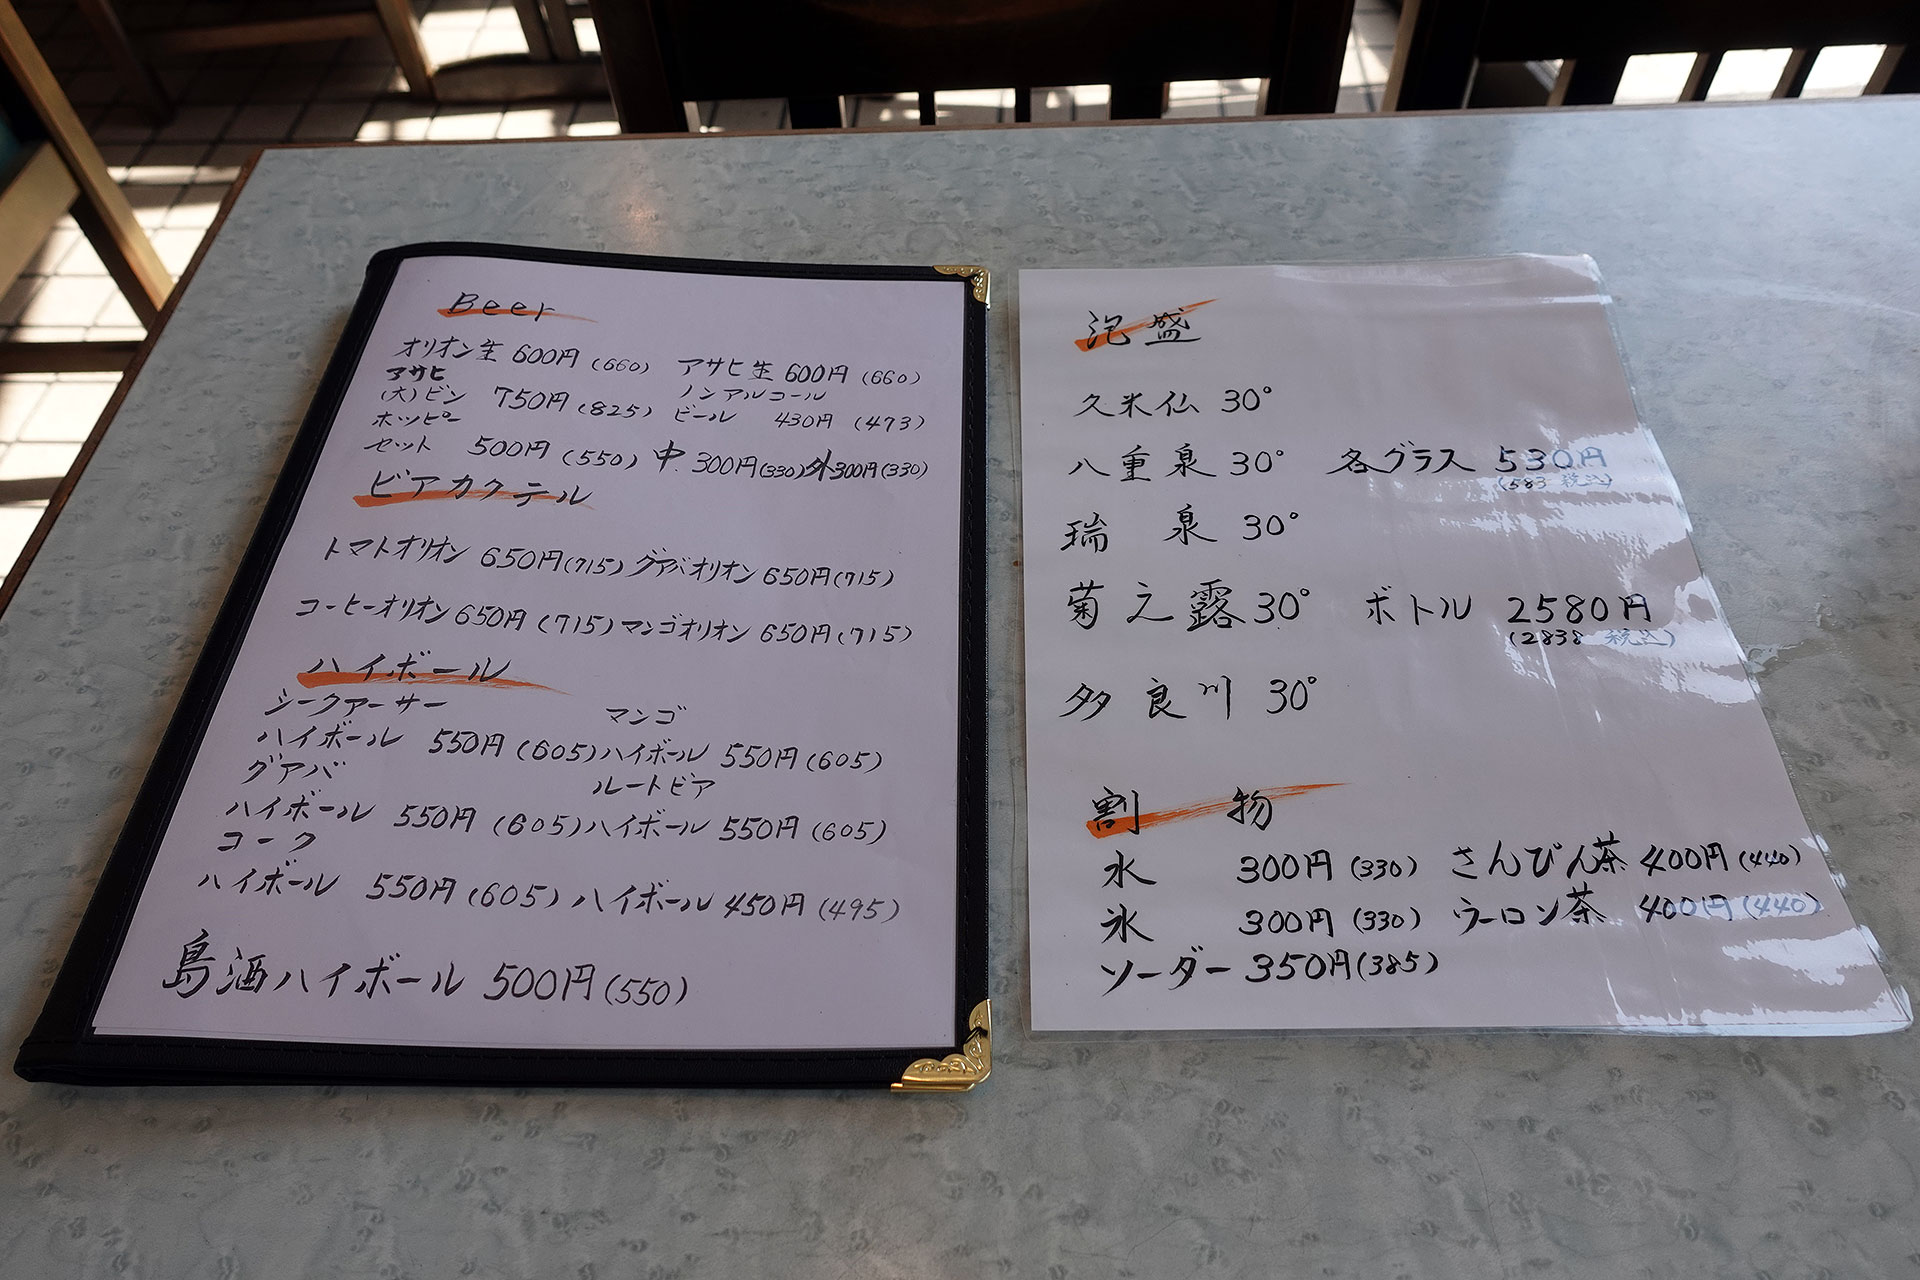 Beer
オリオン生 600円 (660) アサヒ生 600円 (660)
アサヒ
(大)ビン 750円 (825) ノンアルコール
ビール 430円 (473)
ホッピー
セット 500円 (550) 中 300円(330) 外300円(330)
ビアカクテル
トマトオリオン 650円(715) グアバオリオン 650円(715)
コーヒーオリオン 650円 (715) マンゴオリオン 650円(715)
ハイボール
シークァーサー
ハイボール 550円 (605) マンゴ
ハイボール 550円 (605)
グアバ
ハイボール 550円 (605) ルートビア
ハイボール 550円 (605)
コーク
ハイボール 550円 (605) ハイボール 450円 (495)
島酒ハイボール 500円 (550)
泡盛
久米仙 30°
八重泉 30° 各グラス 530円
(583 税込)
瑞泉 30°
菊之露 30° ボトル 2580円
(2838 税込)
多良川 30°
割物
水 300円 (330) さんぴん茶 400円 (440)
氷 300円 (330) ウーロン茶 400円 (440)
ソーダー 350円(385)